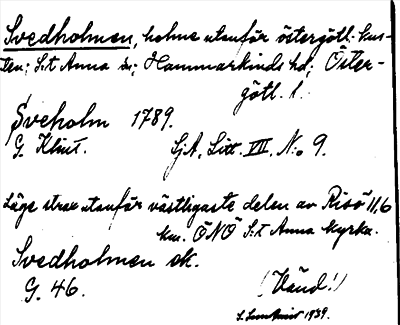 Svedholmen, holme utanför östergötl. kus-
ten; S:t Anna sn; Hammarkinds hd; Öster-
götl. l.
Sveholm 1789.
G. Klint. SjA, Litt. VII, No 9.
Läge strax utanför västligaste delen av Risö 11,6
km. ÖNÖ S:t Anna kyrka.
Svedholmen ek.
G. 46.
(Vänd!)
1939.